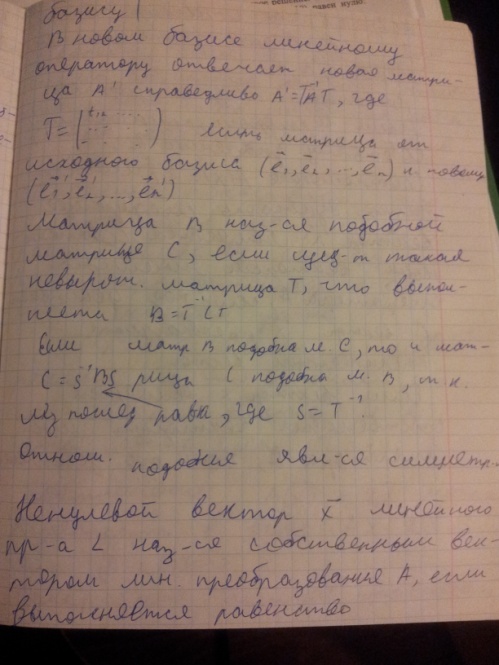 базису
В новом базисе линейному
оператору отвечает новая матри-
ца A' справедливо A'=T⁻¹AT, где
T=( t₁₁ ... ) есть матрица от
исходного базиса (e⃗₁, e⃗₂, ..., e⃗ₙ) к новому
(e⃗₁', e⃗₂', ..., e⃗ₙ')
Матрица B наз-ся подобной
матрице C, если сущ-т такая
невырож. матрица T, что выпол-
няется B=T⁻¹CT
Если матр B подобна м. C, то и мат-
C=S⁻¹BS рица C подобна м. B, т.к.
из послед равен, где S=T⁻¹.
Отнош. подобия явл-ся симметр.
Ненулевой вектор x⃗ линейного
пр-а L наз-ся собственным век-
тором лин. преобразования A, если
выполняется равенство